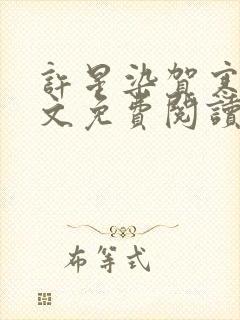 許星染賀寒
文免費閱讀
布等式